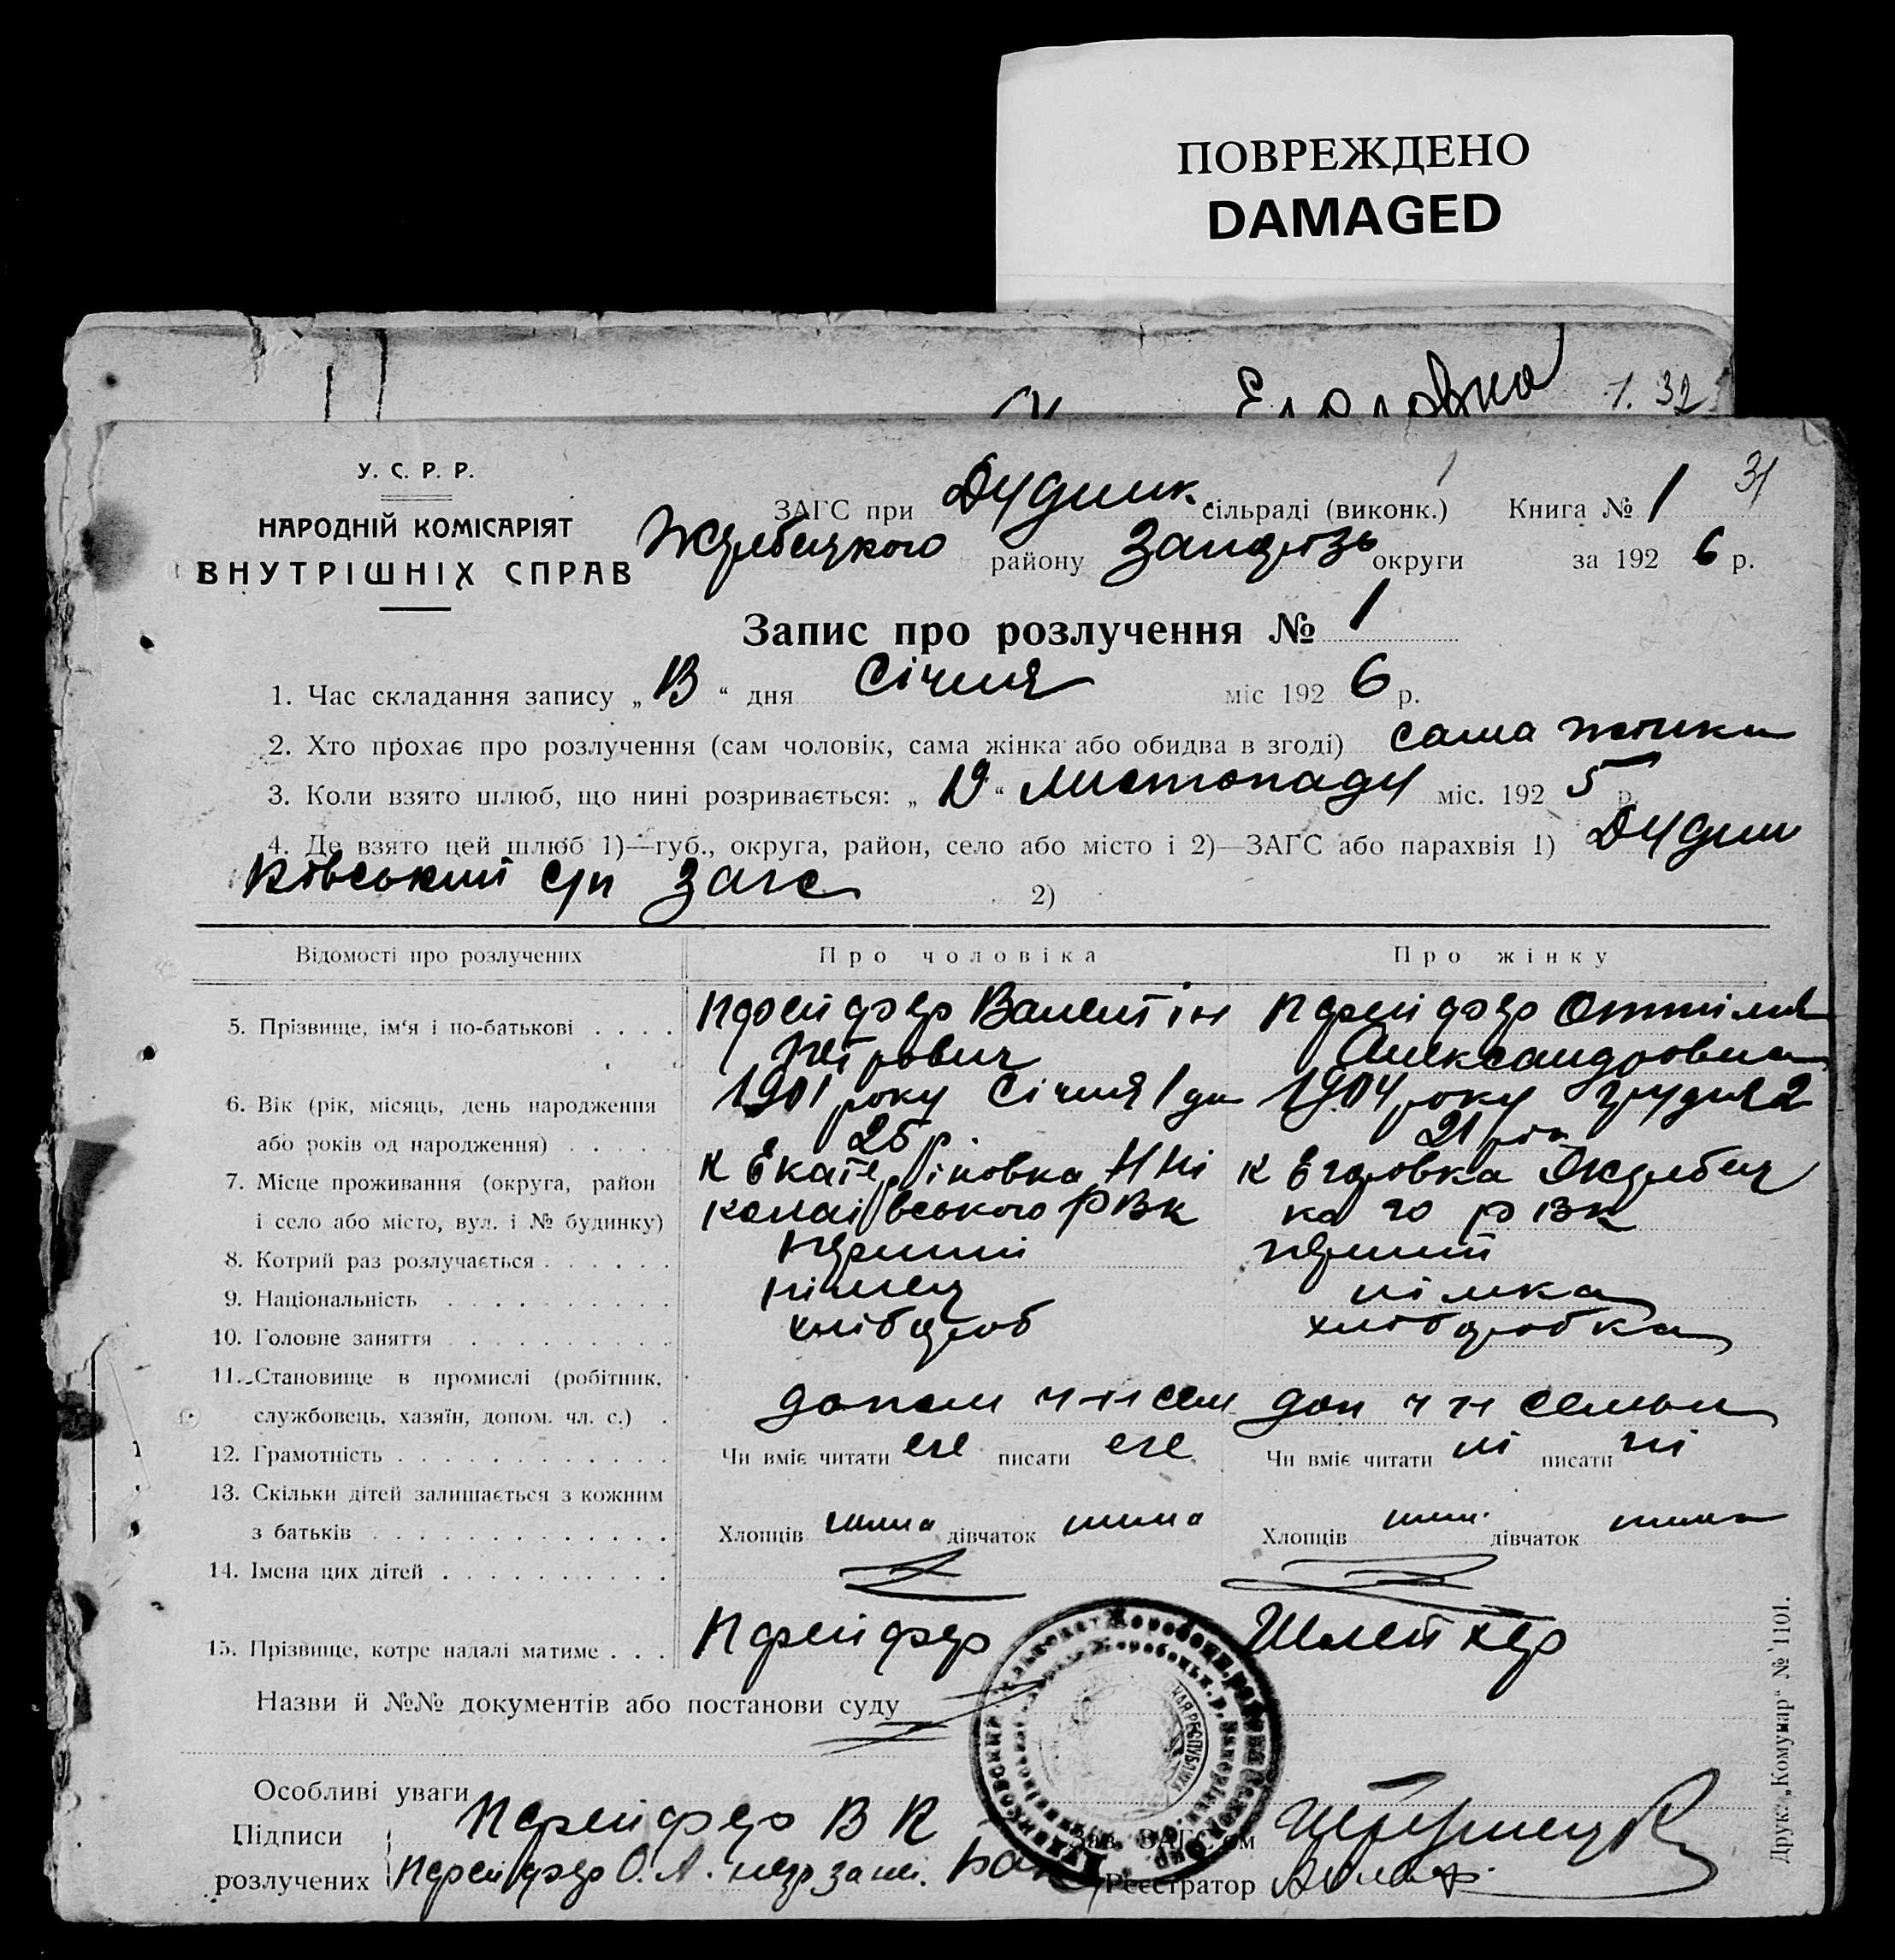 ПОВРЕЖДЕНО
DAMAGED
1. 32
31
У. С. Р. Р.
НАРОДНІЙ КОМІСАРІЯТ
ВНУТРІШНІХ СПРАВ
ЗАГС при Дудник сільраді (виконк.) Книга № 1
району округи за 192 6 р.
Запис про розлучення № 1
1. Час складання запису „ “ дня Січня міс 192 6 р.
2. Хто прохає про розлучення (сам чоловік, сама жінка або обидва в згоді) сама жінка
3. Коли взято шлюб, що нині розривається: „ “ листопаду міс. 192 5 р.
4. Де взято цей шлюб 1)—губ., округа, район, село або місто і 2)—ЗАГС або парахвія 1) Дудни
ківський с/р Загс 2)
Відомості про розлучених Про чоловіка Про жінку
5. Прізвище, ім‘я і по-батькові . . . . Пфейфер Валентін Пфейфер Оттілия
Петрович Александровна
6. Вік (рік, місяць, день народження 1901 року Січня 1 дн 1904 року грудня 2
або років од народження) . . . . . 25 р. 21 рік
7. Місце проживання (округа, район к Екатеріновка к Егоровка
і село або місто, вул. і № будинку) РВК РВК
8. Котрий раз розлучається . . . . . . перший перший
9. Національність . . . . . . . . . . німец німка
10. Головне заняття . . . . . . . . . хлібороб хліборобка
11. Становище в промислі (робітник,
службовець, хазяїн, допом. чл. с.) . допом чл сем доп чл семьи
12. Грамотність . . . . . . . . . . . . Чи вміє читати еге писати еге Чи вміє читати ні писати ні
13. Скільки дітей залишається з кожним
з батьків . . . . . . . . . . . . . Хлопців нима дівчаток нима Хлопців ним. дівчаток нима
14. Імена цих дітей . . . . . . . . . .
15. Прізвище, котре надалі матиме . . . Пфейфер Шлейхер
Назви й №№ документів або постанови суду
Особливі уваги
Підписи Пфейфер В Зав. ЗАГС‘ом
розлучених Пфейфер О. А. Реєстратор
Друк. „Комунар“ № 1101.